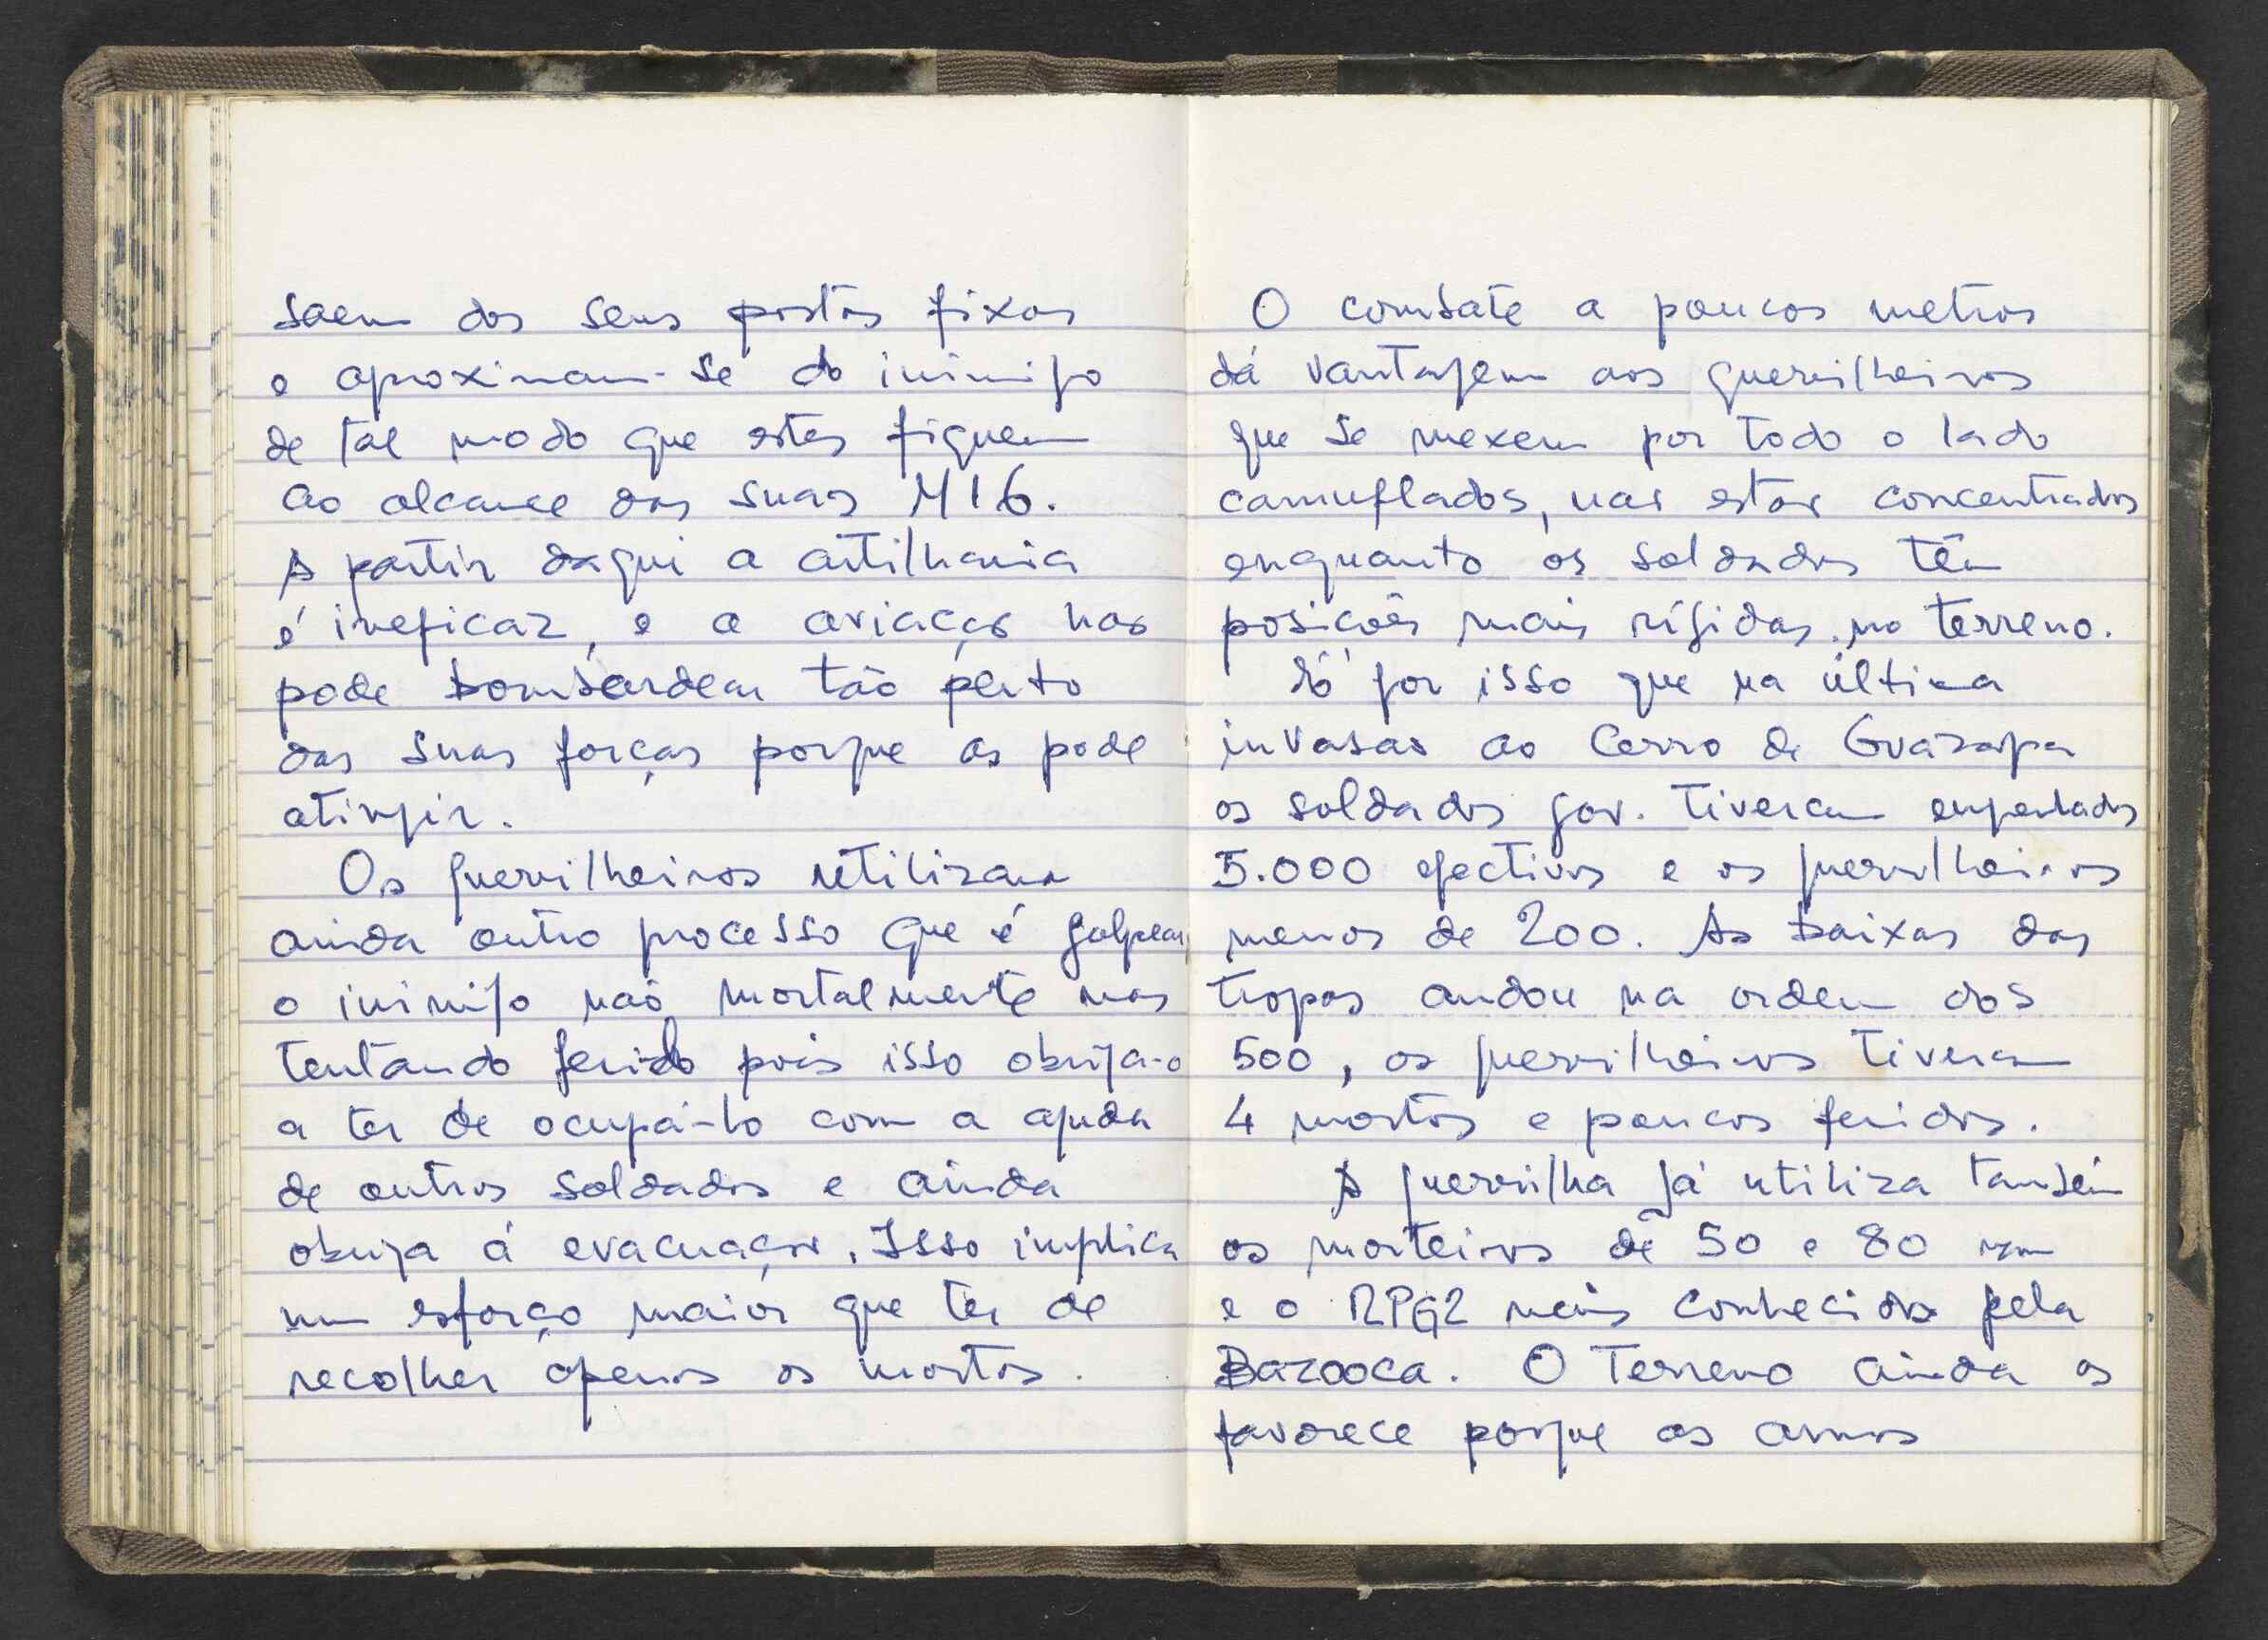 saem dos seus postos fixos
e aproximam-se do inimigo
de tal modo que estes fiquem
ao alcance das suas M16.
A partir daqui a artilharia
é ineficaz, e a aviação não
pode bombardear tão perto
das suas forças porque as pode
atingir.
Os guerrilheiros utilizam
ainda outro processo que é golpear
o inimigo não mortalmente mas
tentando ferido pois isso obriga-o
a ter de ocupá-lo com a ajuda
de outros soldados e ainda
obriga á evacuação. Isso implica
um esforço maior que ter de
recolher apenas os mortos.
O combate a poucos metros
dá vantagem aos guerrilheiros
que se mexem por todo o lado
camuflados, não estão concentrados
enquanto os soldados têm
posições mais rígidas no terreno.
Só por isso que na última
invasão ao Cerro de Guazapa
os soldados gov. tiveram empenhados
5.000 efectivos e os guerrilheiros
menos de 200. As baixas das
tropas andou na ordem dos
500, os guerrilheiros tiveram
4 mortos e poucos feridos.
A guerrilha já utiliza também
os morteiros de 50 e 80 mm
e o RPG2 mais conhecido pela
Bazooca. O Terreno ainda os
favorece porque as armas